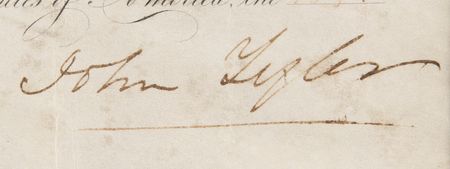 of America, the
John Tyler